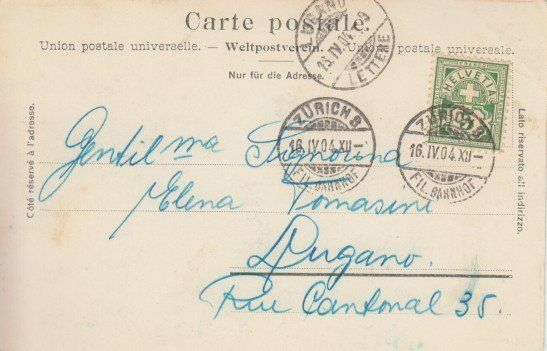 Carte postale.
Union postale universelle. — Weltpostverein. — Unione postale universale.
Nur für die Adresse.
LUGANO
16.IV.04.
LETTERE
HELVETIA
5
ZÜRICH 8
16.IV.04.XII–
FIL. BAHNHOF
ZÜRICH 8
16.IV.04.XII–
FIL. BAHNHOF
Côté réservé à l'adresse.
Lato riservato all indirizzo.
Gentilma Signorina
Elena Tomasini
Lugano.
Rue Cantonal 35.